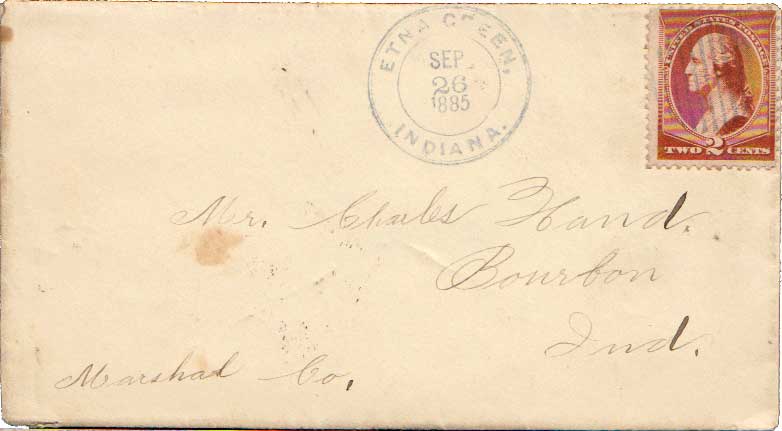 ETNA GREEN,
SEP.
26
1885
INDIANA.
UNITED STATES POSTAGE
TWO 2 CENTS
Mr. Charles Hand.
Bourbon
Ind.
Marshal Co,